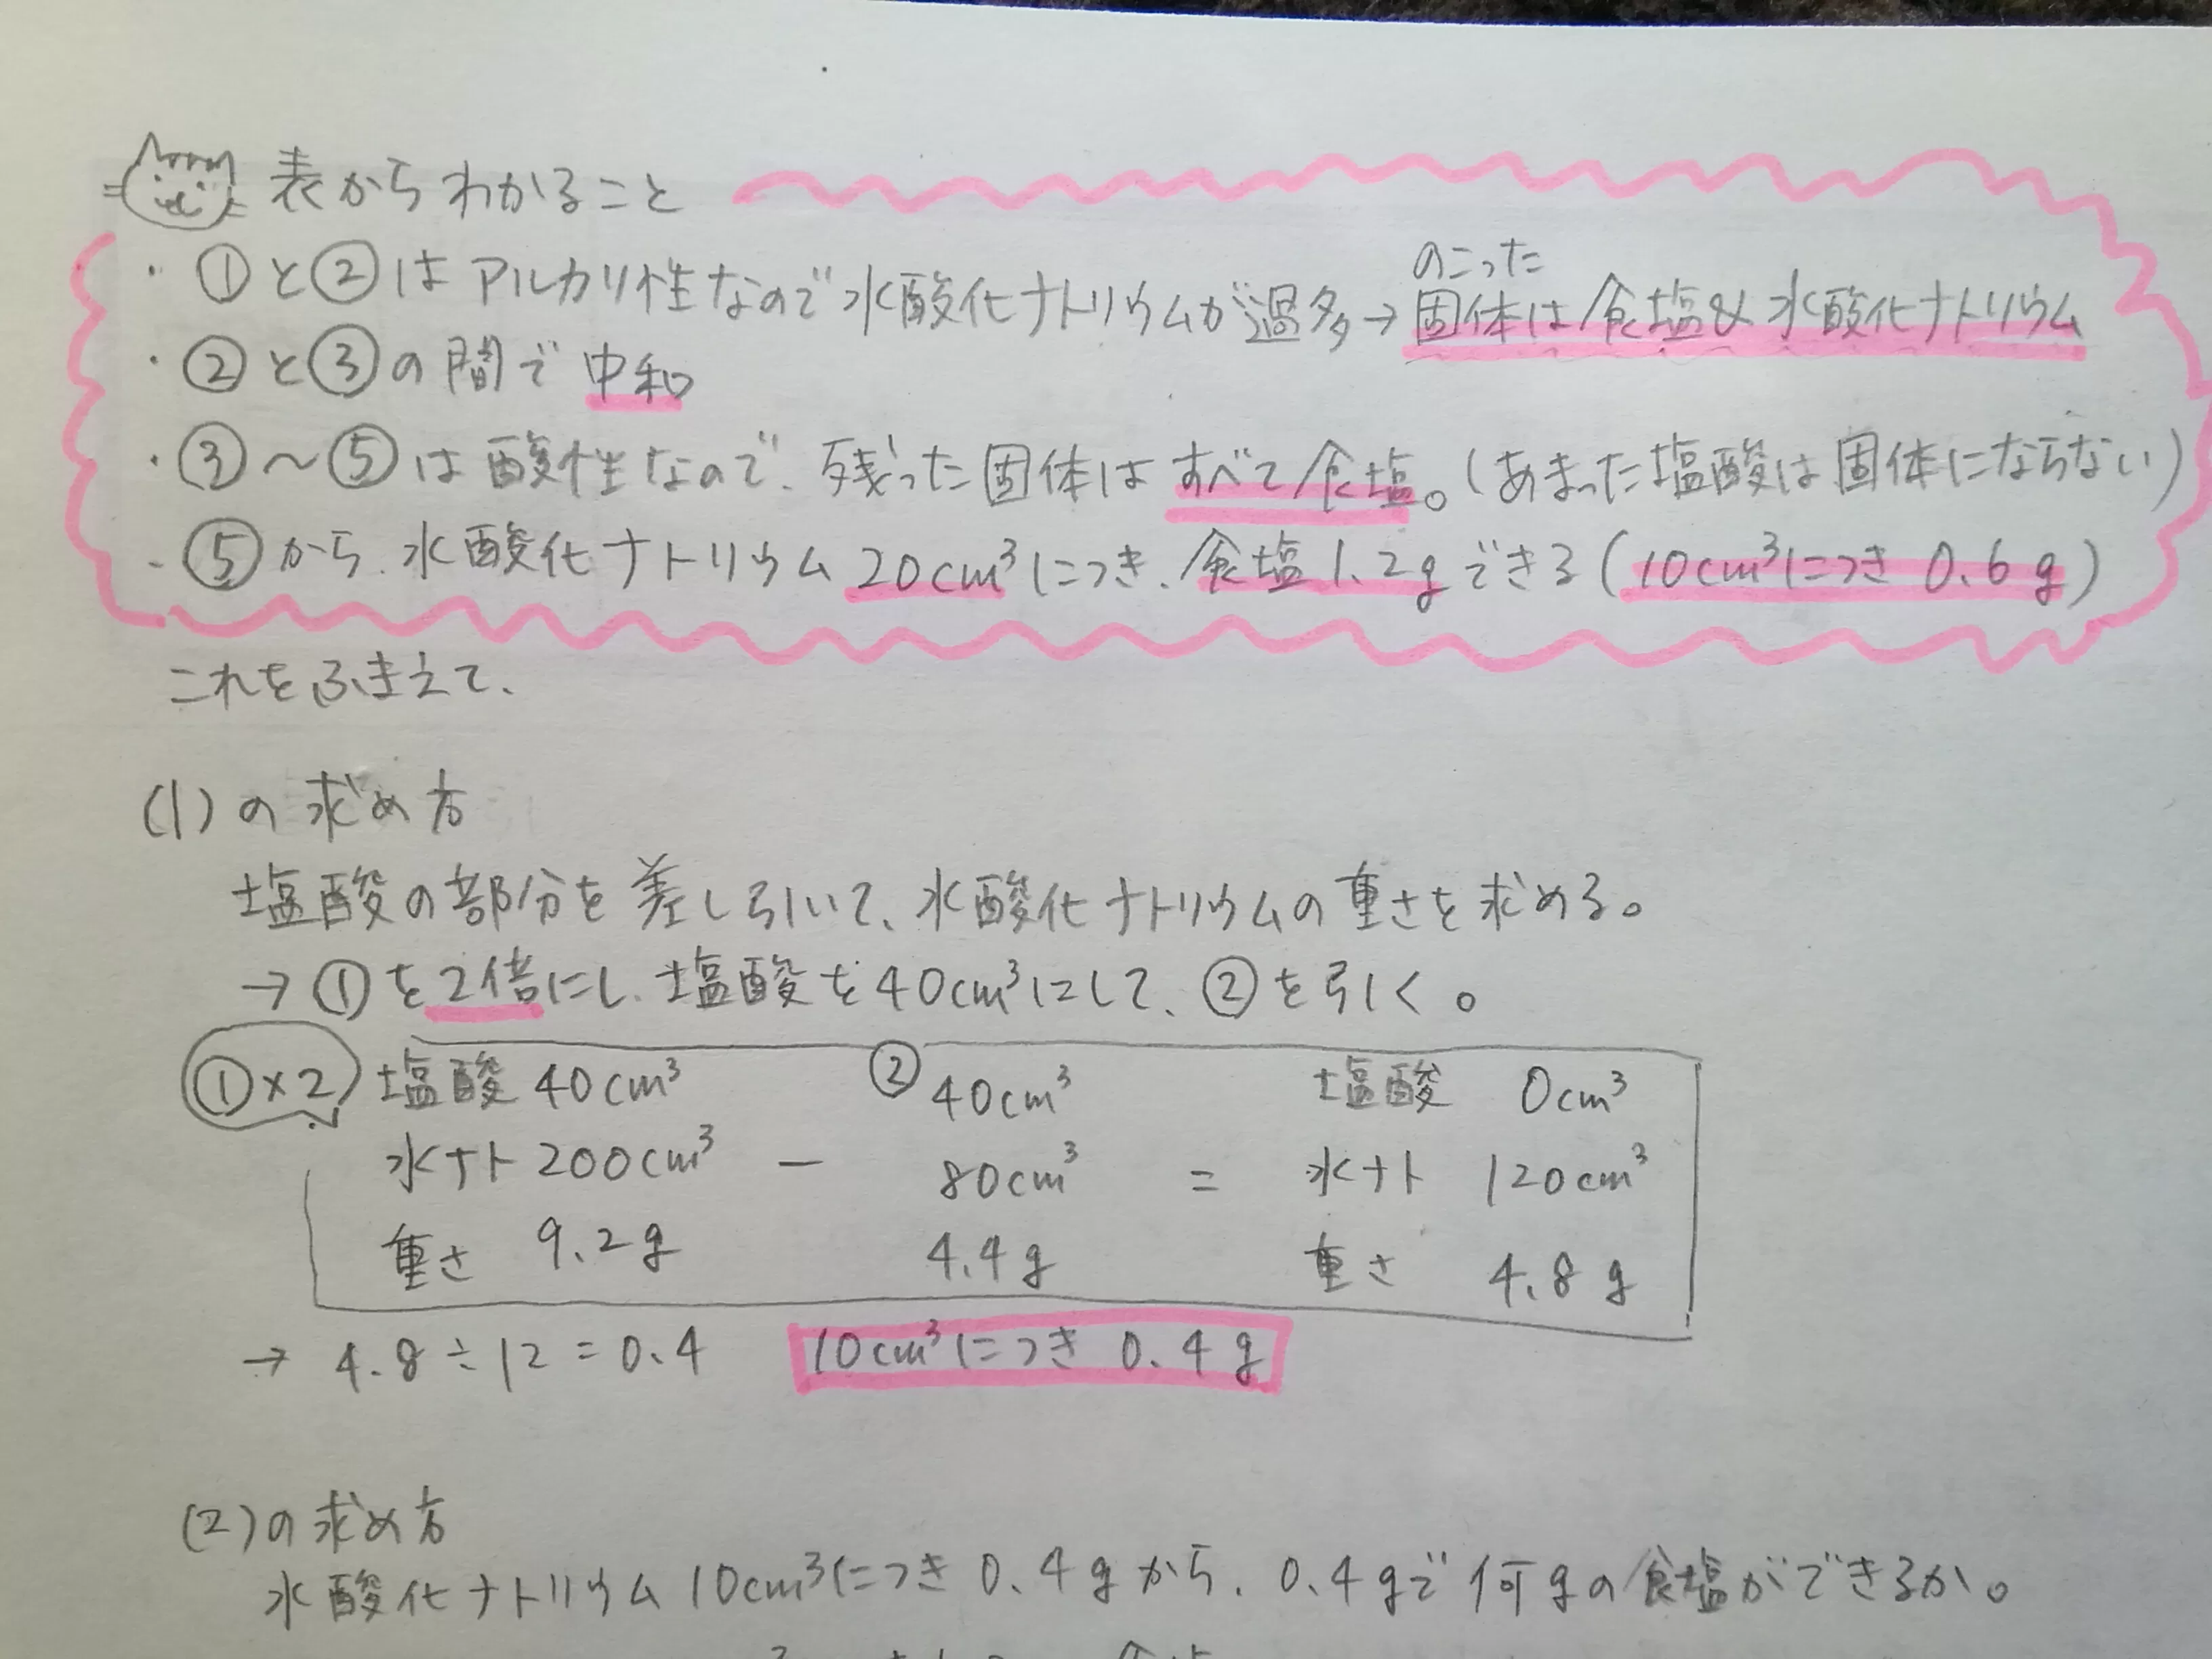 表からわかること
・①と②はアルカリ性なので水酸化ナトリウムが過多→固体は食塩&水酸化ナトリウム
のこった
・②と③の間で中和
・③～⑤は酸性なので、残った固体はすべて食塩。(あまった塩酸は固体にならない)
・⑤から、水酸化ナトリウム20cm³につき、食塩1.2gできる(10cm³につき0.6g)
これをふまえて、
(1)の求め方
塩酸の部分を差し引いて、水酸化ナトリウムの重さを求める。
→①を2倍にし、塩酸を40cm³にして、②を引く。
①×2 塩酸 40cm³ ② 40cm³ 塩酸 0cm³
水ナト 200cm³ － 80cm³ = 水ナト 120cm³
重さ 9.2g 4.4g 重さ 4.8g
→ 4.8÷12=0.4 10cm³につき 0.4g
(2)の求め方
水酸化ナトリウム10cm³につき0.4gから、0.4gで何gの食塩ができるか。